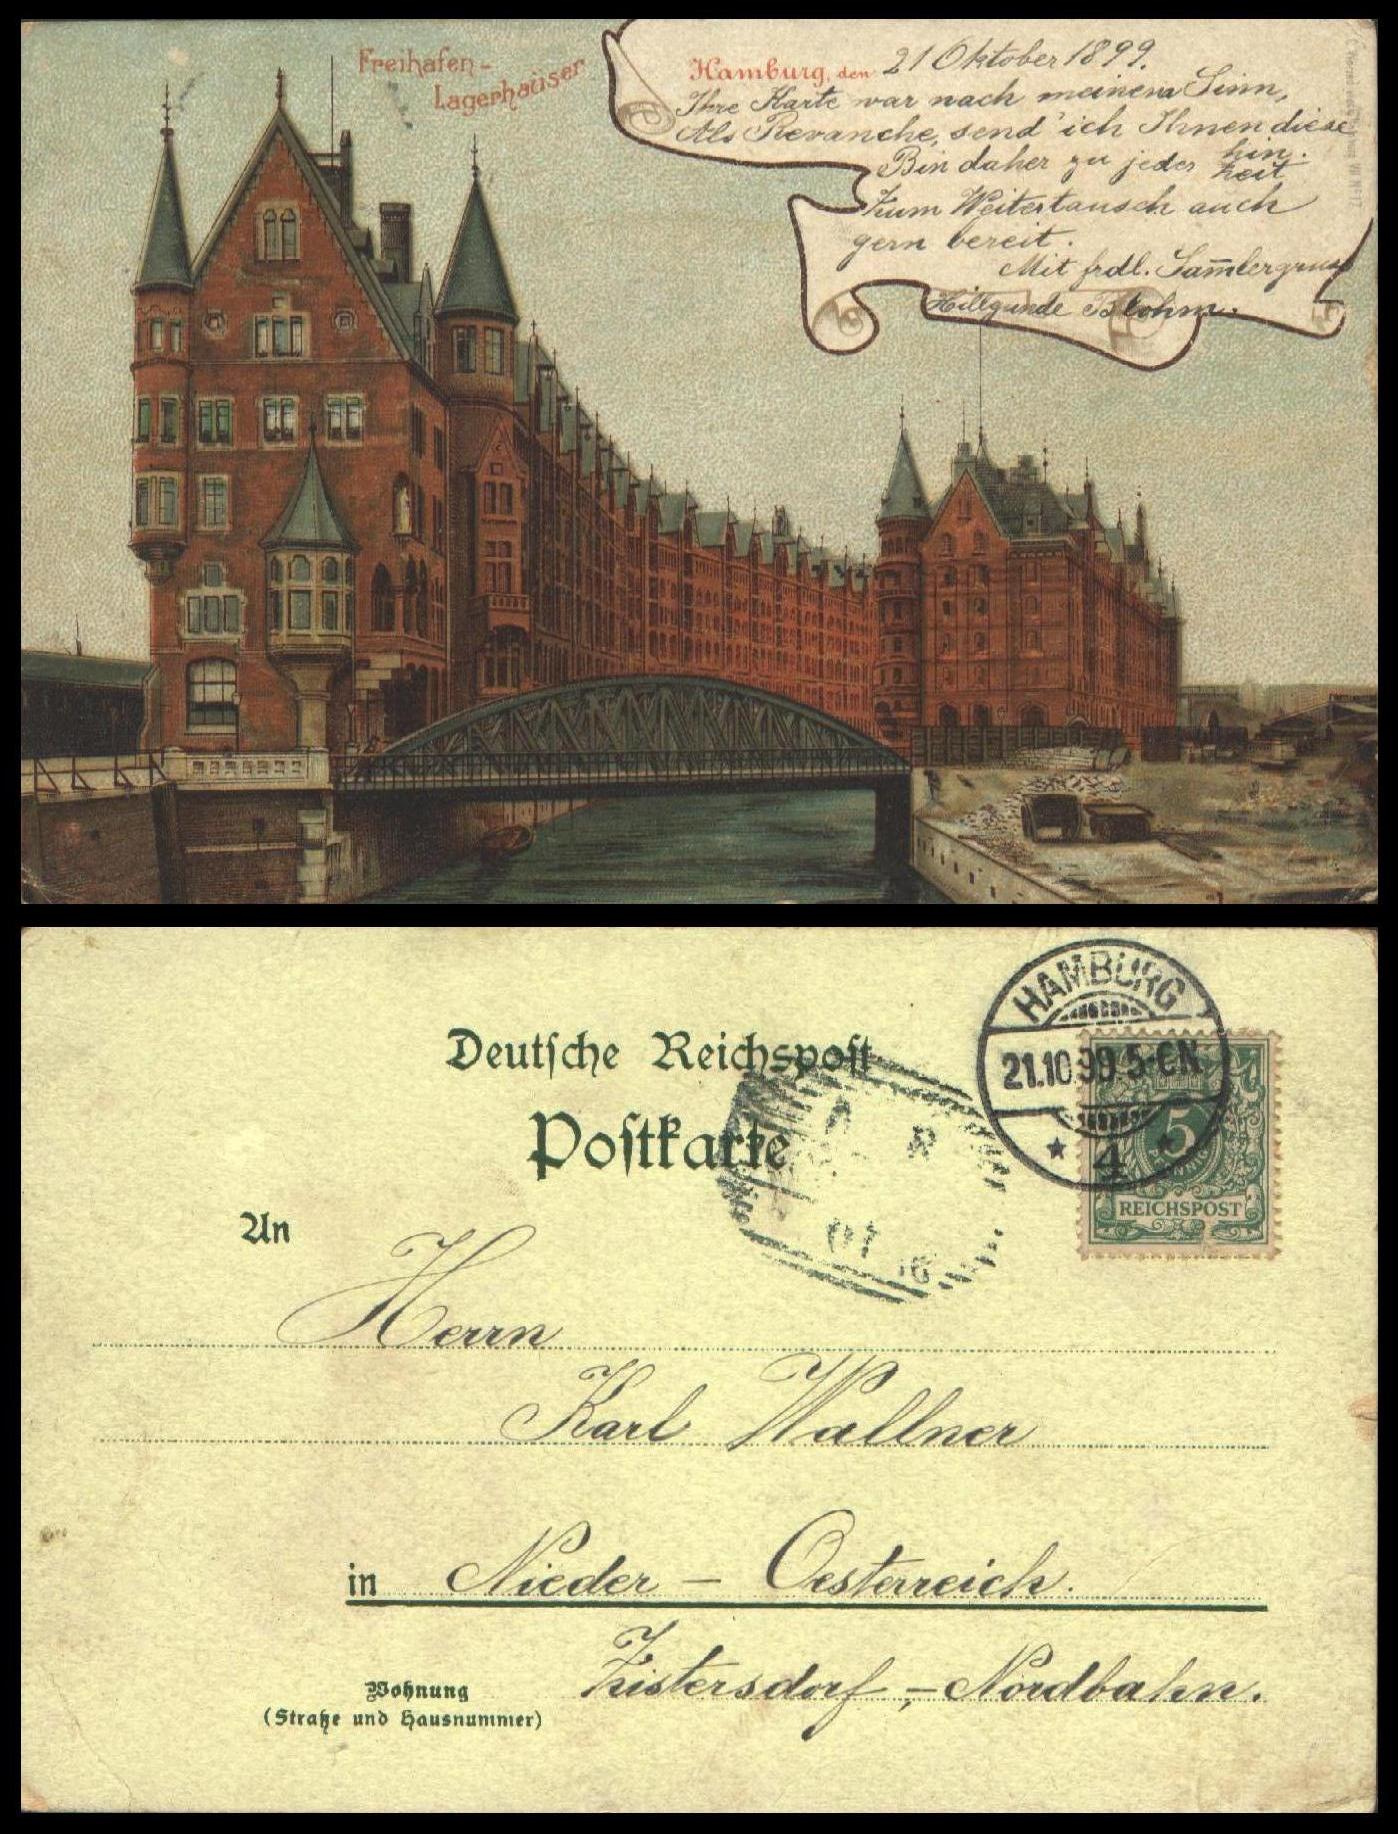 Freihafen-
Lagerhäuser
Hamburg, den 21 Oktober 1899.
Ihre Karte war nach meinem Sinn,
Als Revanche, send' ich Ihnen diese
hin.
Bin daher zu jeder Zeit
Zum Weitertausch auch
gern bereit.
Mit frdl. Sam̅lergruss
Hillgunde Blohm.
Deutsche Reichspost
Postkarte
HAMBURG
21.10.99 5-6N
* 4 *
5
PFENNIG
REICHSPOST
An
Herrn
Karl Wallner
in Nieder-Oesterreich.
Zistersdorf, - Nordbahn.
Wohnung
(Straße und Hausnummer)